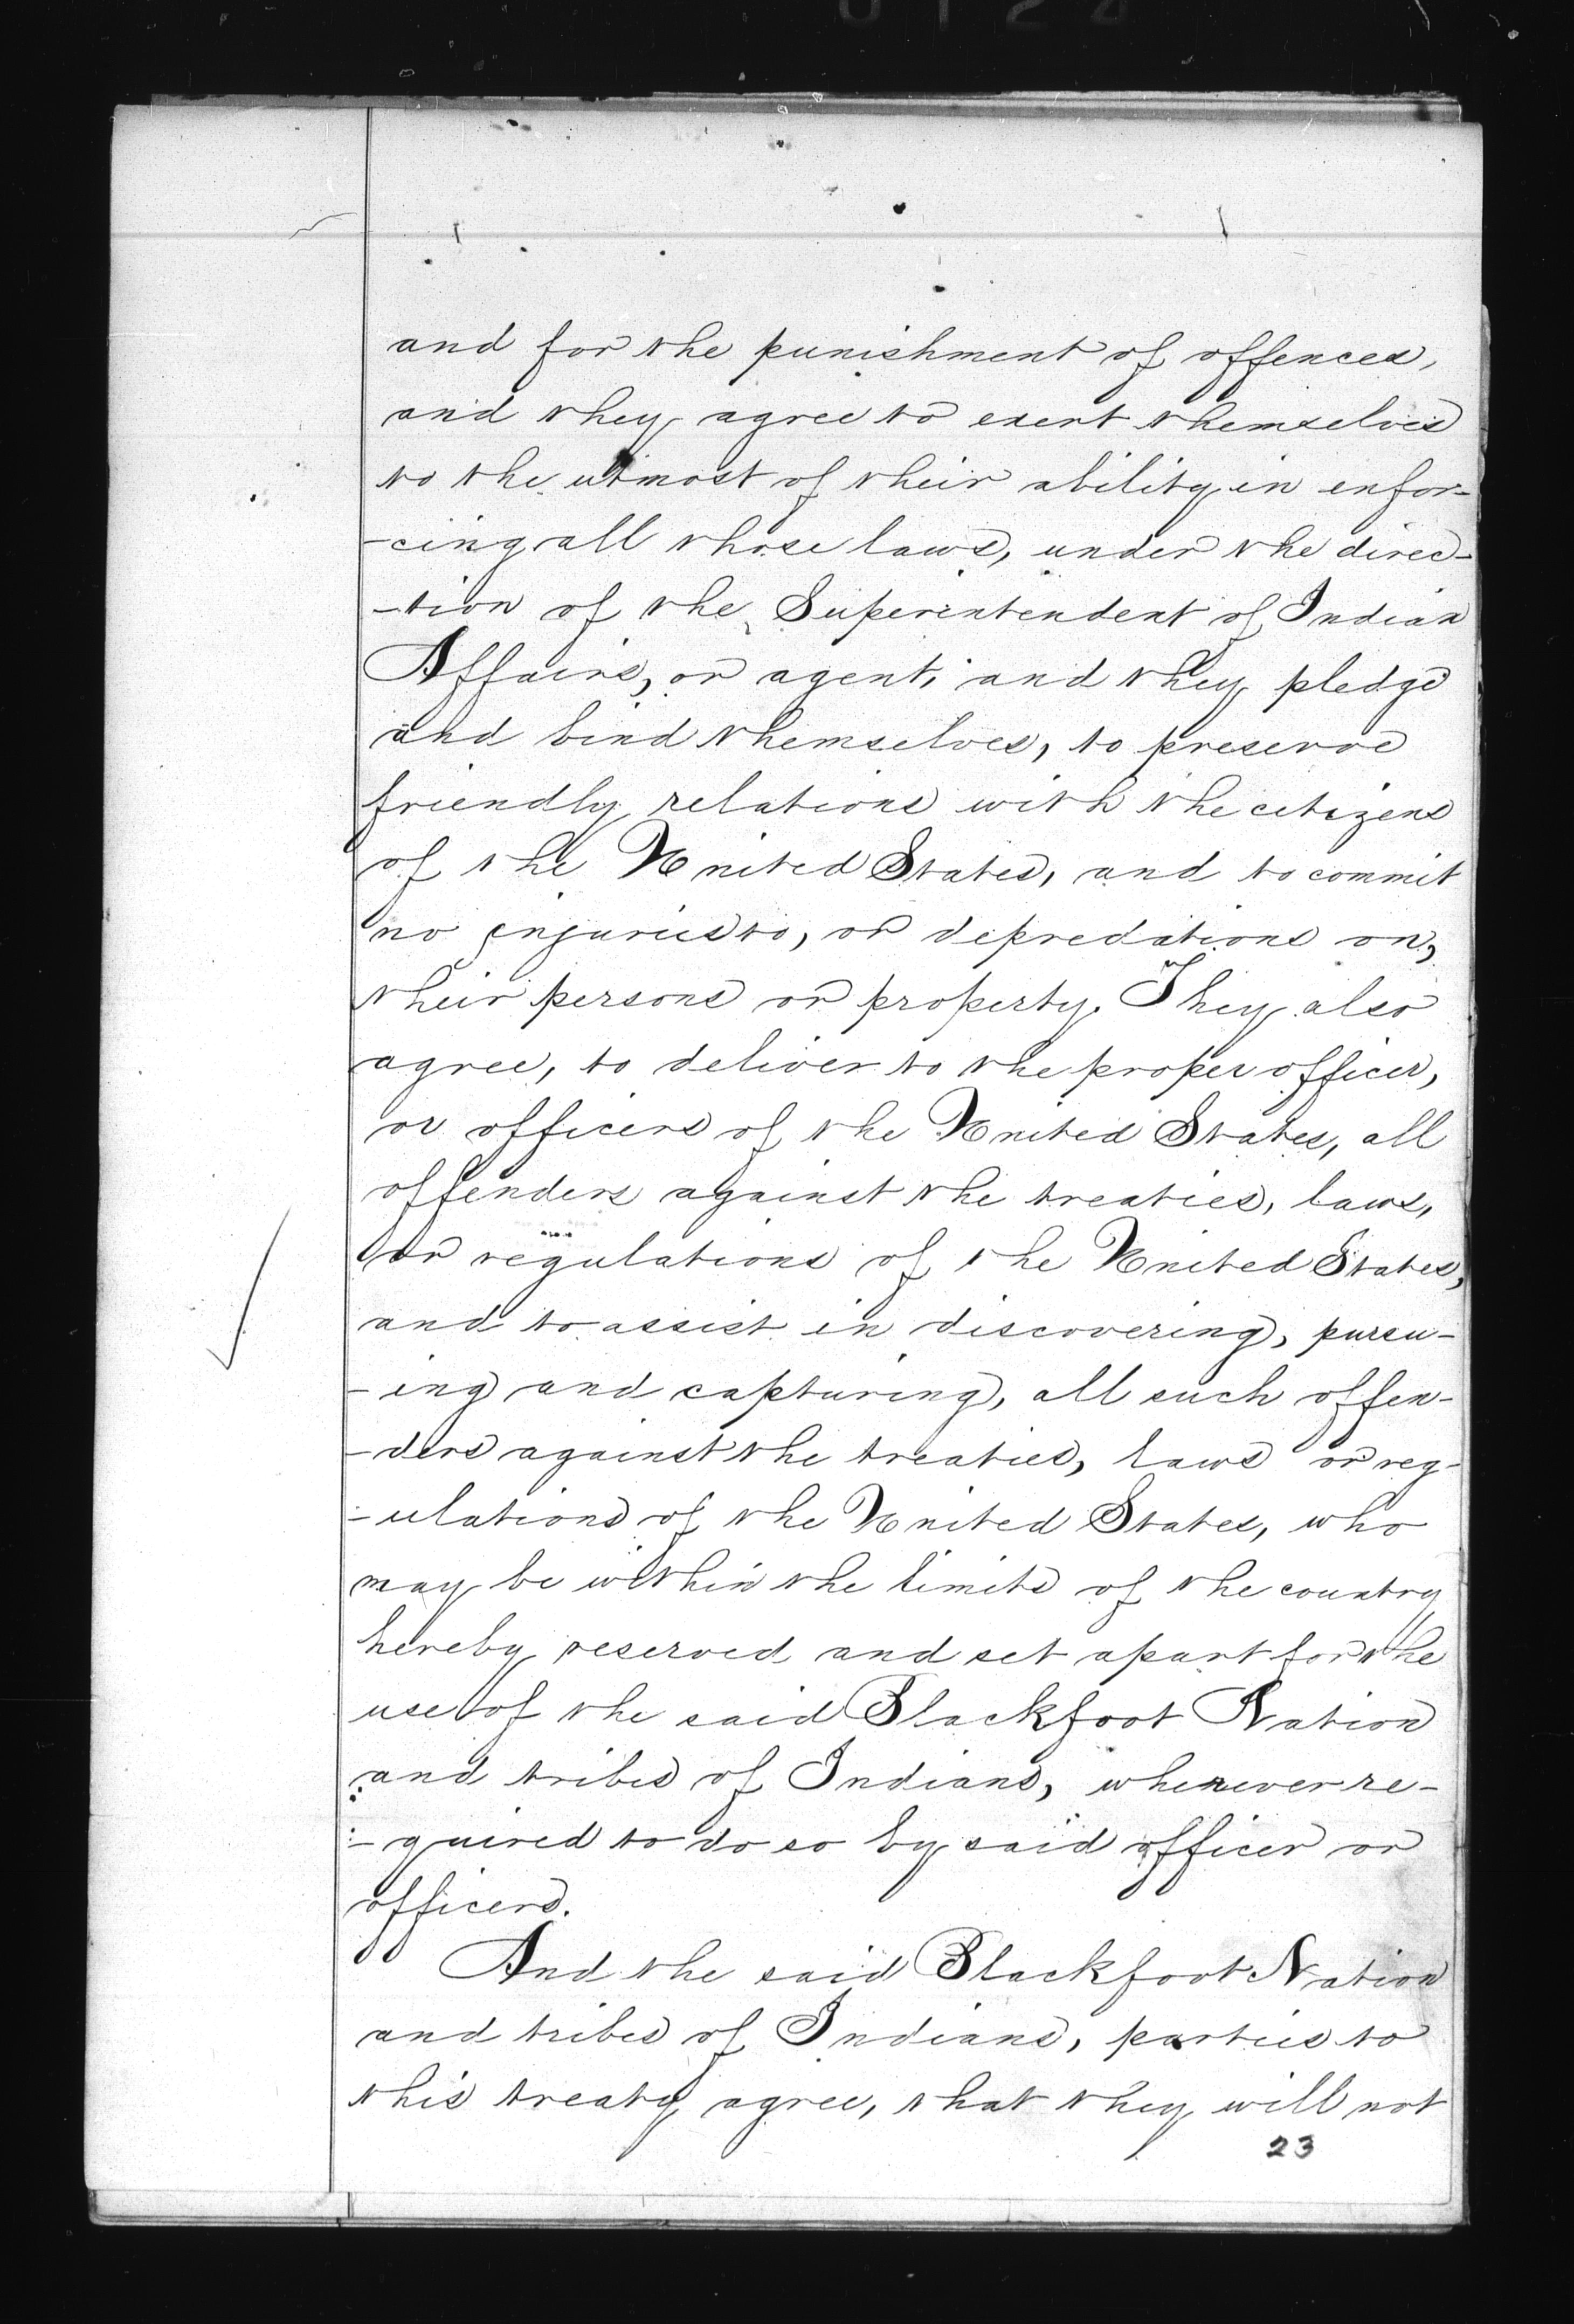 and for the punishment of offences,
and they agree to exert themselves
to the utmost of their ability in enfor-
-cing all those laws, under the direc-
-tion of the Superintendent of Indian
Affairs, or agent; and they pledge
and bind themselves, to preserve
friendly relations with the citizens
of the United States, and to commit
no injuries to, or depredations on,
their persons or property. They also
agree, to deliver to the proper officer,
or officers of the United States, all
offenders against the treaties, laws,
or regulations of the United States,
and to assist in discovering, pursu-
-ing and capturing, all such offen-
-ders against the treaties, laws or reg-
-ulations of the United States, who
may be within the limits of the country
hereby reserved and set apart for the
use of the said Blackfoot Nation
and tribes of Indians, whenever re-
-quired to do so by said officer or
officers.
And the said Blackfoot Nation
and tribes of Indians, parties to
this treaty agree, that they will not
23